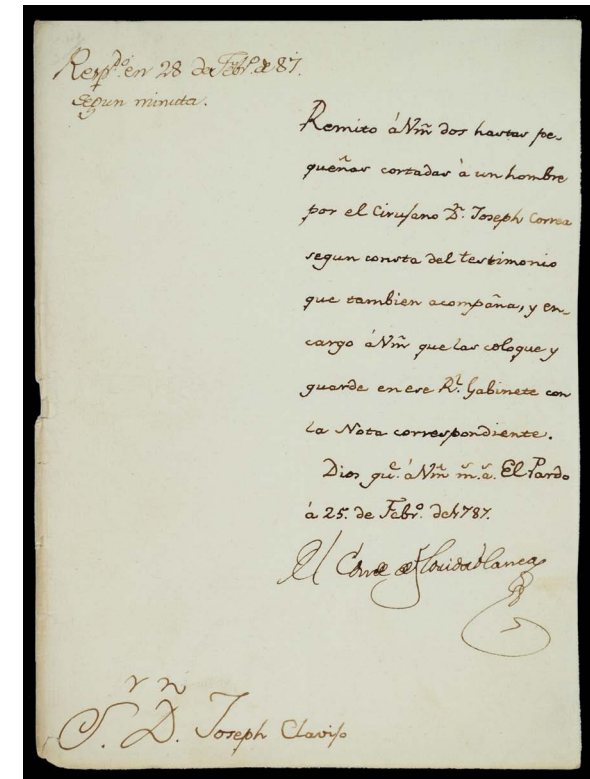 Resp.do en 28 de Febr.o de 87.
segun minuta.
Remito á Vm̃ dos hastas pe-
queñas cortadas à un hombre
por el Cirujano D.n Joseph Correa
segun consta del testimonio
que tambien acompaña, y en-
cargo á Vm̃ que las coloque y
guarde en ese R.l Gabinete con
la Nota correspondiente.
Dios gu.e á Vm̃ m.s a.s El Pardo
á 25. de Febr.o de 1787.
El Conde de Floridablanca
S.r D.n Joseph Clavijo